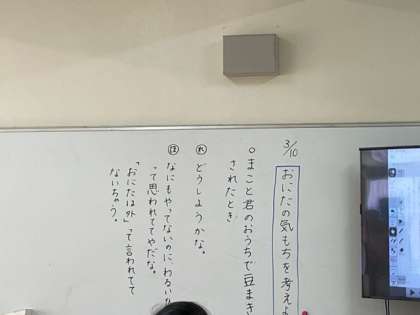 3/10
おにたの気もちを考えよ
○まこと君のおうちで豆まき
されたとき
㋹どうしようかな。
㋭なにもやってないのに、わるい
って思われててやだな。
「おにたは外」って言われてて
ないちゃう。